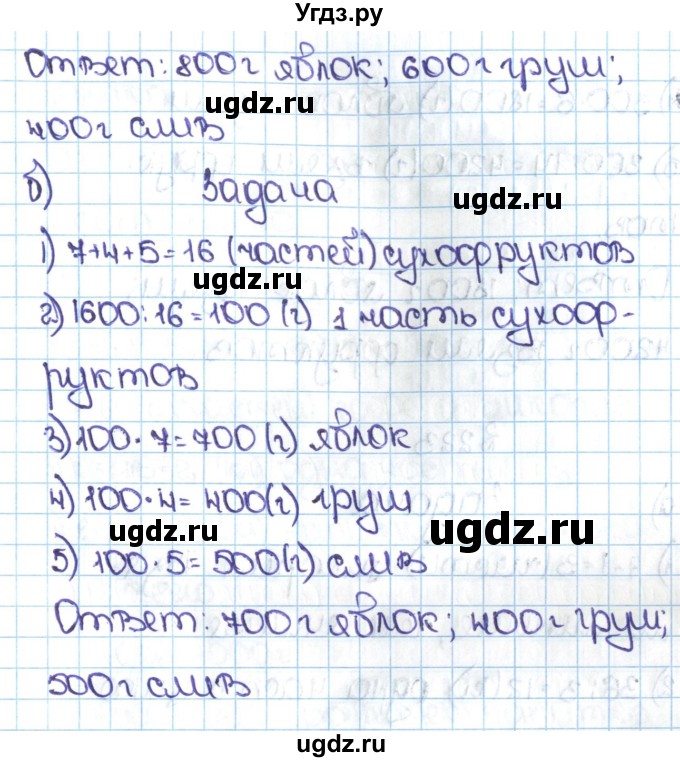 Угдз.ру
Ответ: 800г яблок; 600г груш;
ugdz.ru
400г слив
б) Задача
ugdz.ru
1) 7+4+5=16 (частей) сухофруктов
ugdz.ru
2) 1600:16=100 (г) 1 часть сухоф-
ugdz.ru
руктов
3) 100·7=700 (г) яблок
4) 100·4=400(г) груш
ugdz.ru
ugdz.ru
5) 100·5=500(г) слив
Ответ: 700г яблок; 400г груш;
500г слив
ugdz.ru
ugdz.ru